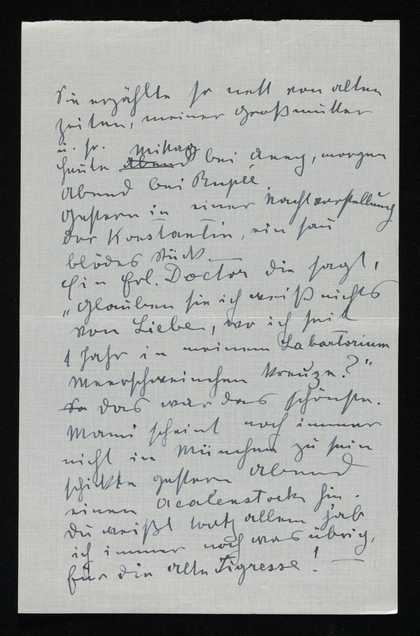 Sie erzählte so nett von alten
Zeiten, meiner Großmutter
u. so. Mittag
heute Abend bei Anny, morgen
Abend bei
Gestern in einer Nachtvorstellung
der Konstantin, ein sau
blödes Stück.
Ein Frl. Doctor die sagt,
"Glauben sie ich weiß nichts
von Liebe, wo ich seit
1 Jahr in meinem Labartorium
Meerschweinchen kreuze?"
So das war das schönste.
Mami scheint noch immer
nicht in München zu sein
schikte gestern Abend
einen Acalenstock hin.
Du weißt trotz allem hab
ich immer noch was übrig,
für die alte Tigresse! —